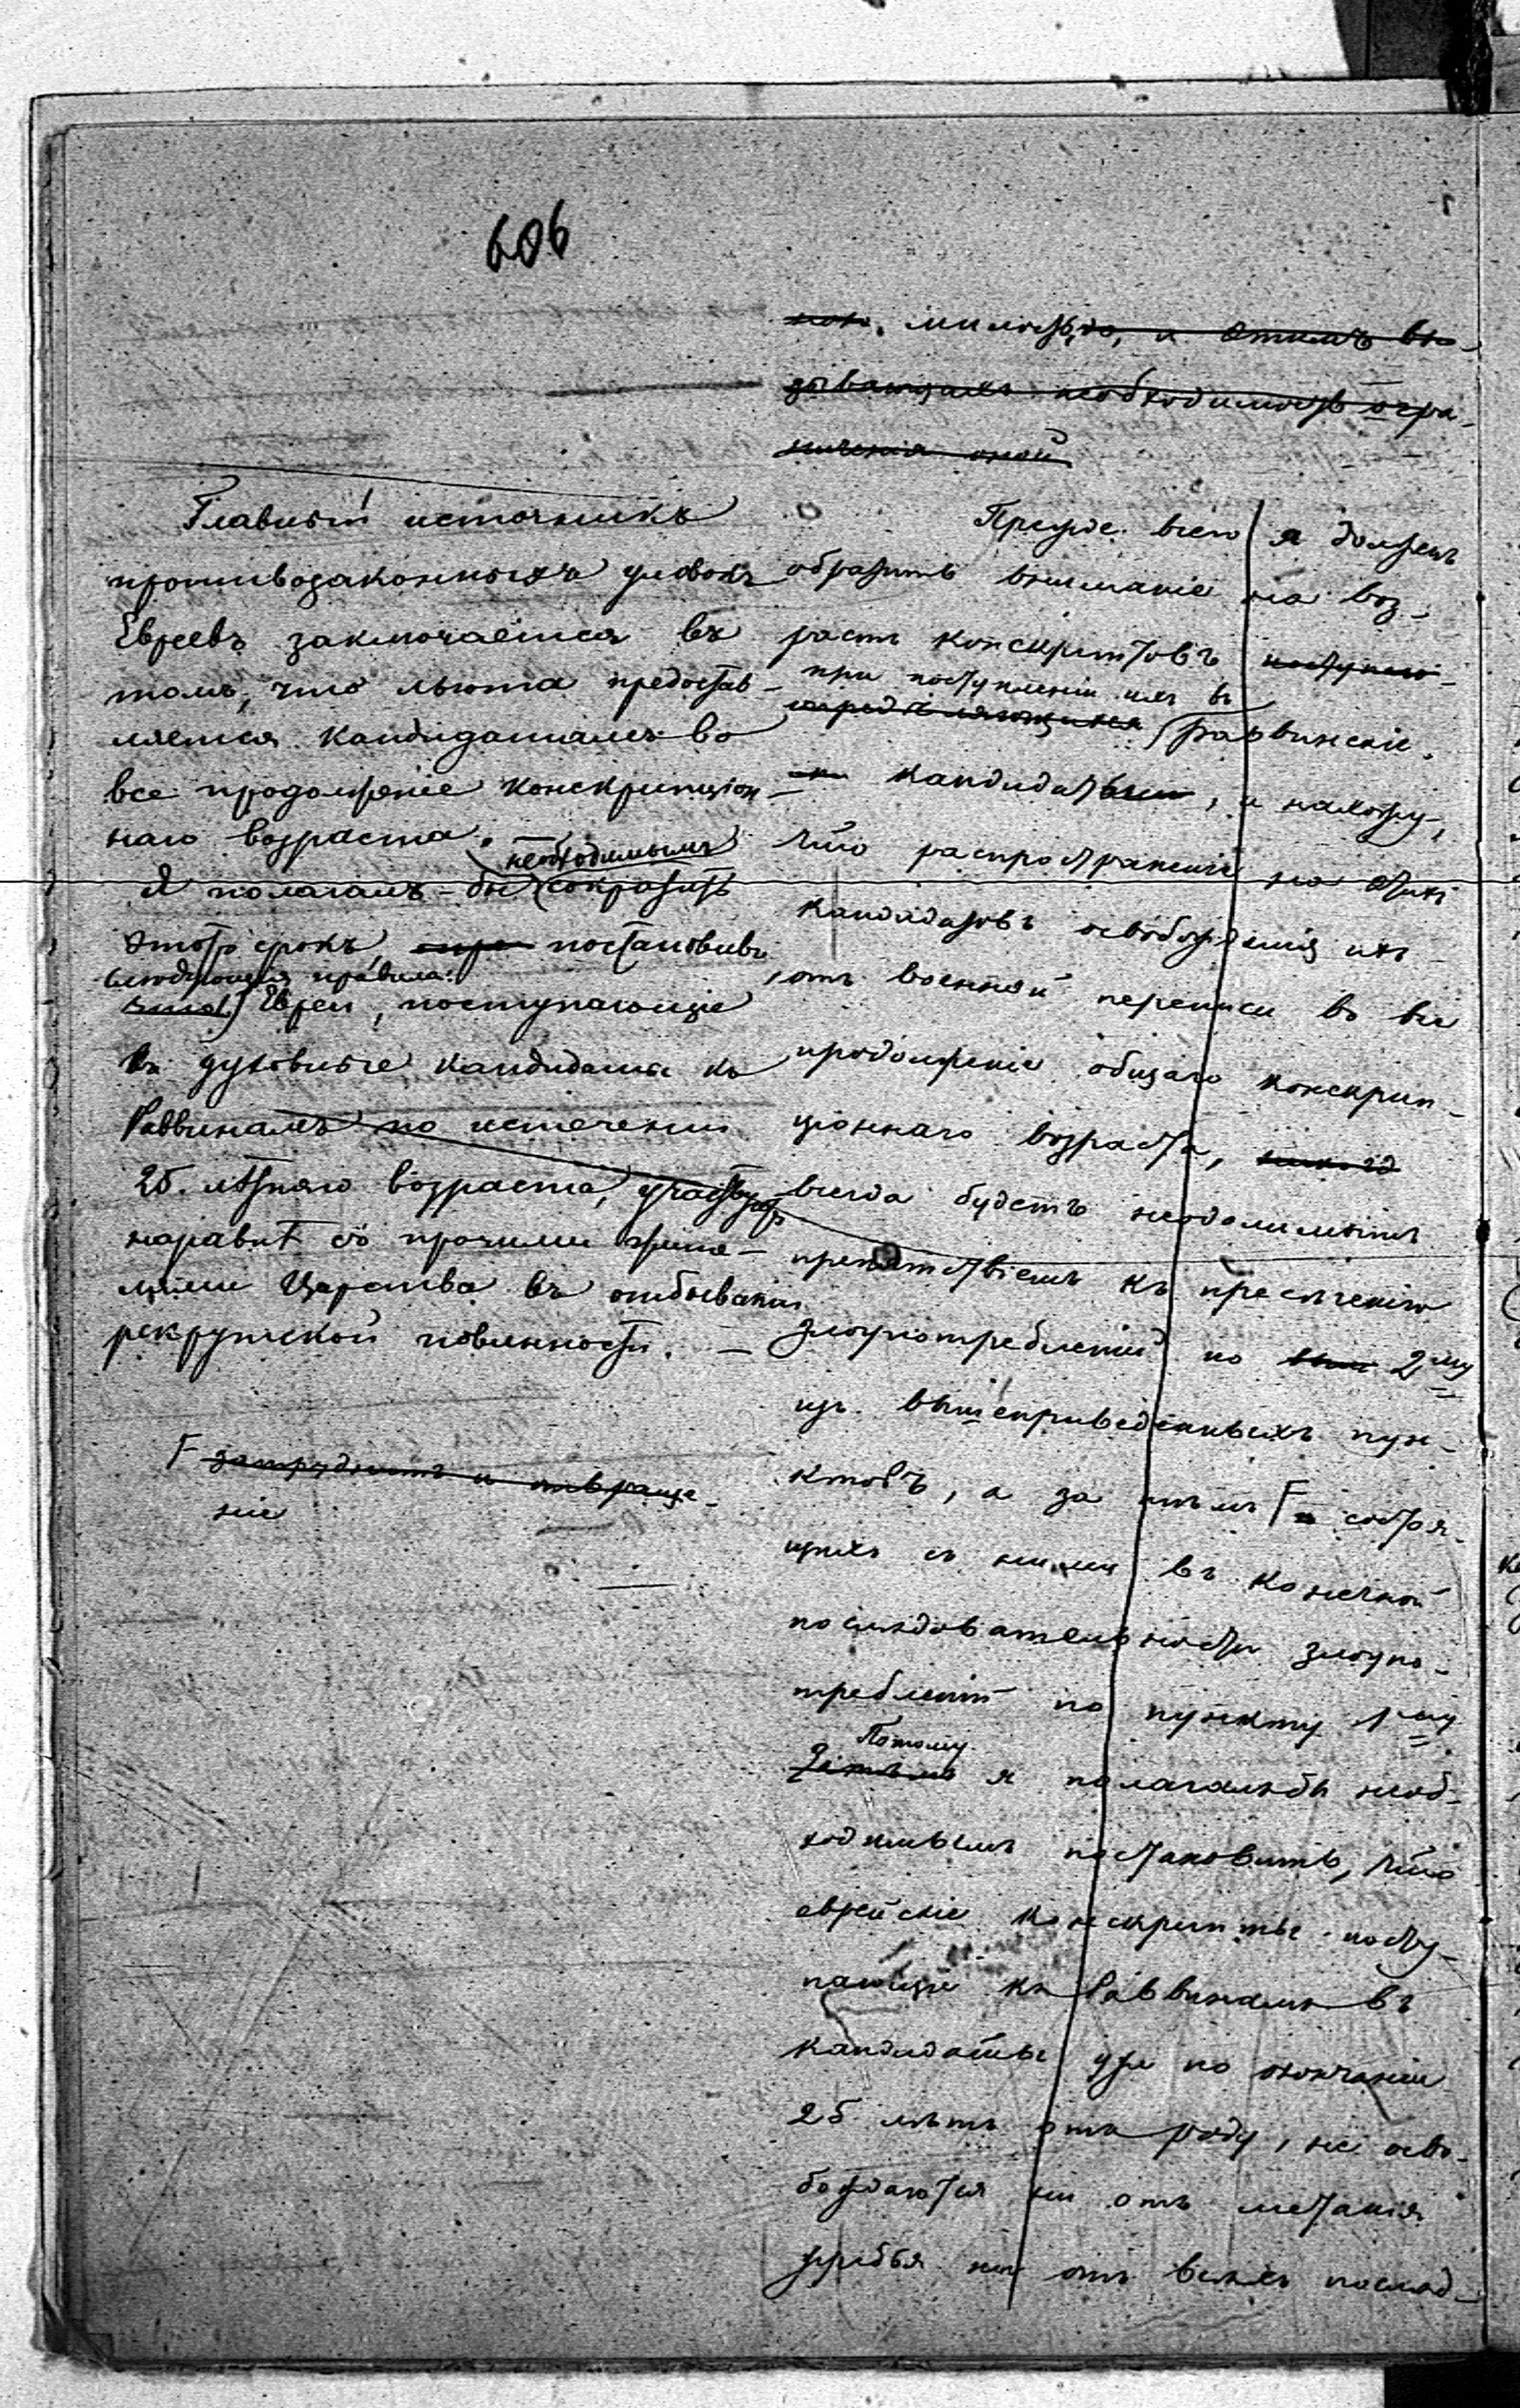 606
милость, и этимъ вы-
зывающихъ необходимость огра-
ниченія оной
Главный источникъ
противозаконныхъ уловокъ
Евреевъ заключается въ
томъ, что льгота предостав-
ляется кандидатамъ во
все продолженіе конскрипціон-
наго возраста.
необходимымъ
Я полагалъ-бы сократить
этотъ срокъ, постановивъ
слѣдующія правила:
Евреи, поступающіе
въ духовные кандидаты къ
Раввинамъ по истеченіи
25. лѣтняго возраста, участвуютъ
наравнѣ со прочими жите-
лями Царства въ отбываніи
рекрутской повинности. —
Г затруднитъ и отвраще-
ніе
Прежде всего я долженъ
обратить вниманіе на воз-
растъ конскриптовъ
при поступленіи ихъ въ
опредѣляющихся Раввинскіе
кандидаты, и нахожу,
что распространеніе на этихъ
кандидатовъ освобожденія ихъ
отъ военной переписи во все
продолженіе общаго конскрип-
ціоннаго возраста,
всегда будетъ неодолимымъ
препятствіемъ къ пресѣченію
злоупотребленій по 2му
изъ вышеприведенныхъ пун-
ктовъ, а за тѣмъ Г и состоя-
щихъ съ ними въ конечной
послѣдовательности злоупо-
требленій по пункту 1му
Потому
я полагалъ бы необ-
ходимымъ постановить, что
еврейскіе конскрипты посту-
пающіе къ Раввинамъ въ
кандидаты уже по окончаніи
25 лѣтъ отъ роду, не осво-
бождаются ни отъ метанія
жребья ни отъ всѣхъ послѣд-